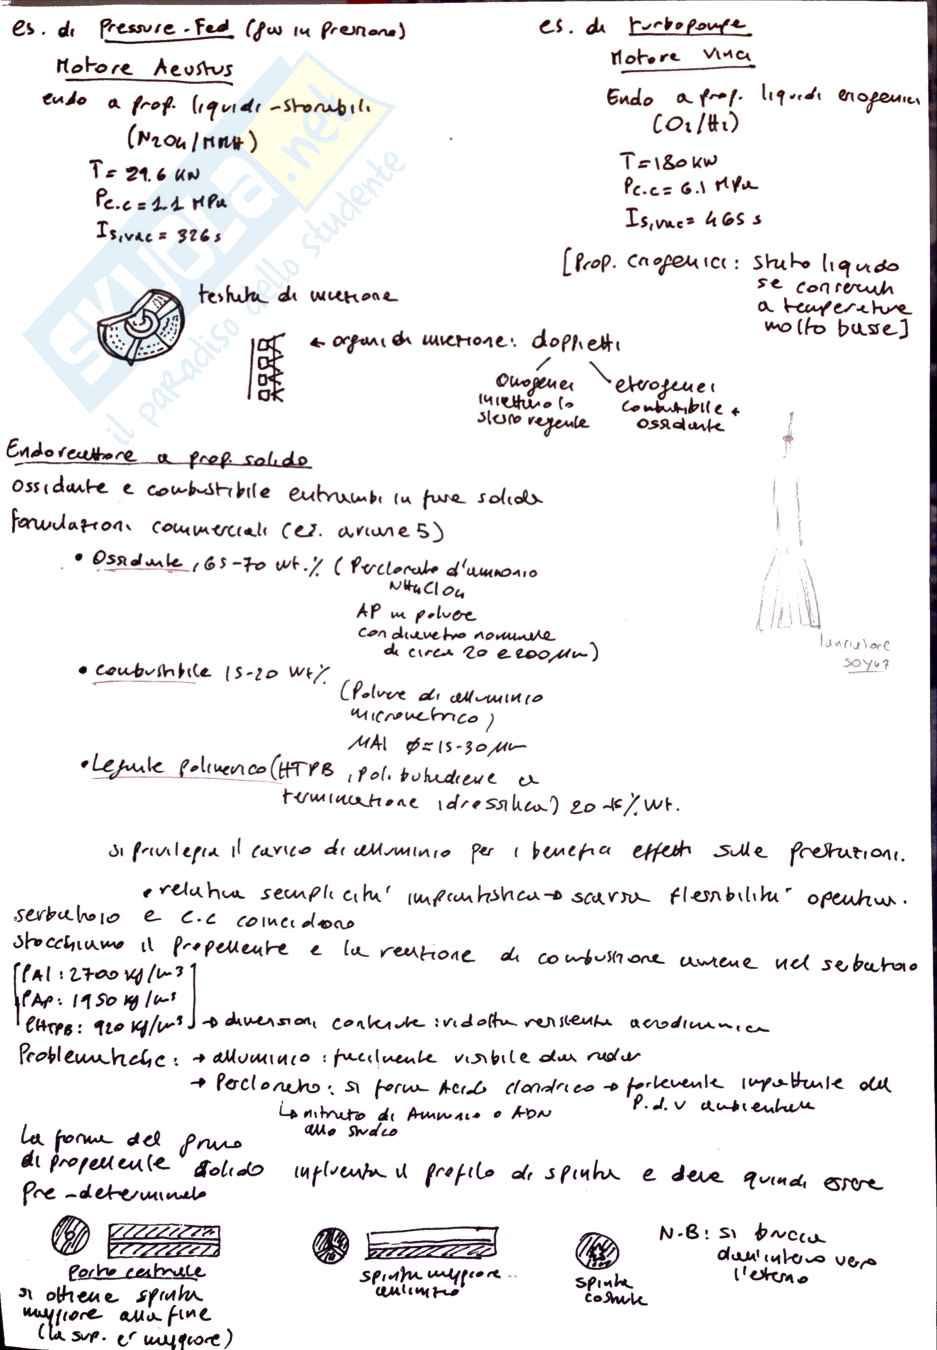 es. di Pressure-Fed (gas in pressione)
Motore Aeustus
endo a prop. liquidi-storabili
(N2O4/MMH)
T= 29.6 KN
Pc.c = 1.1 MPa
Is,vac = 326s
es. di turbopompe
Motore Vinci
Endo a prop. liquidi criogenici
(O2/H2)
T=180 KN
Pc.c = 6.1 MPa
Is,vac= 465 s
[Prop. Criogenici: stato liquido
se conservati
a temperature
molto basse]
testata di iniezione
← organi di iniezione: doppietti
Omogenei
iniettano lo
stesso reagente
eterogenei
combustibile +
ossidante
Endoreattore a prop. solido
Ossidante e combustibile entrambi in fase solida
formulazioni commerciali (es. ariane 5)
• Ossidante, 65-70 wt.% (Perclorato d'ammonio
NH4ClO4
AP in polvere
con diametro nominale
di circa 20 e 200 μm)
• combustibile 15-20 wt%
(Polvere di alluminio
micrometrico)
μAl ϕ=15-30 μm
• Legante polimerico (HTPB, polibutadiene a
terminazione idrossilica) 20 % wt.
lanciatore
soyuz
si privilegia il carico di alluminio per i benefici effetti sulle prestazioni.
• relativa semplicita' impiantistica → scarsa flessibilita' operativa.
serbatoio e c.c coincidono
stocchiamo il propellente e la reazione di combustione avviene nel serbatoio
[ρAl: 2700 kg/m3
ρAP: 1950 kg/m3
ρHTPB: 920 kg/m3] → dimensioni contenute: ridotta resistenza aerodinamica
Problematiche: → alluminio: facilmente visibile dai radar
→ Perclorato: si forma Acido cloridrico → fortemente impattante dal
p.d.v ambientale
↳ nitrato di Ammonio o ADN
allo studio
La forma del grano
di propellente solido influenza il profilo di spinta e deve quindi essere
Pre-determinato
Porto centrale
si ottiene spinta
maggiore alla fine
(la sup. e' maggiore)
spinta maggiore
all'inizio
spinta
costante
N.B: si brucia
dall'interno verso
l'esterno
SKUOLA.net
il paradiso dello studente